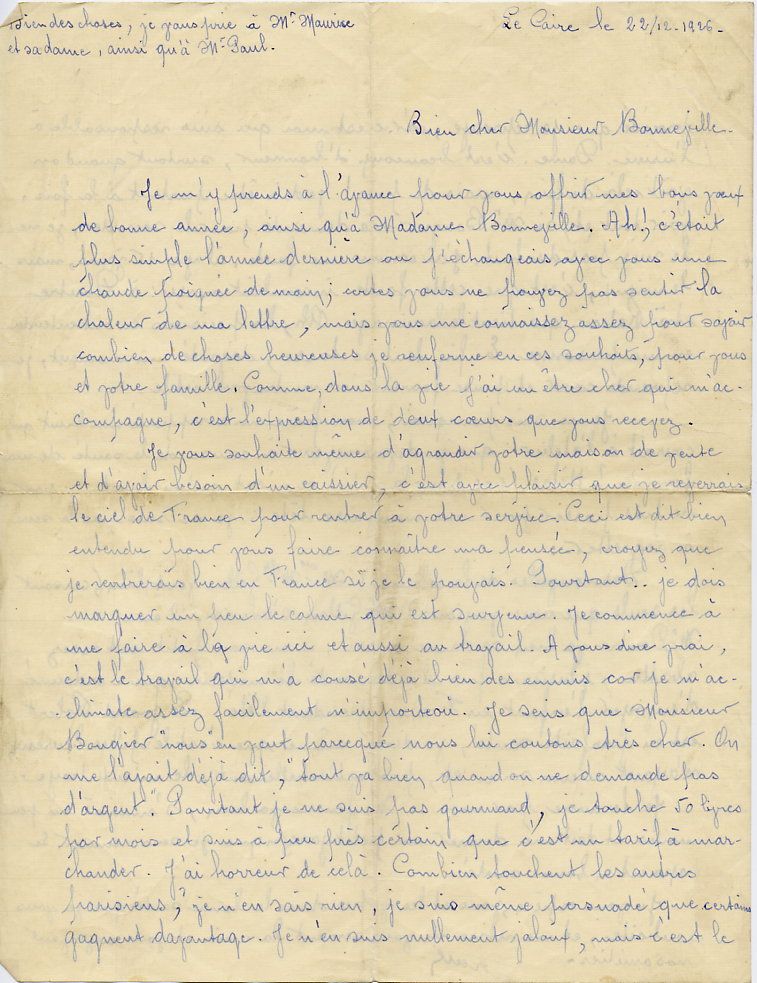 Bien des choses, je vous prie à Mr Maurice
et sadame, ainsi qu'à Mr Paul.
Le Caire le 22/12-1926-
Bien cher Monsieur Bonneville.
Je m'y prends à l'avance pour vous offrir mes bons vœux
de bonne année, ainsi qu'à Madame Bonneville. Ah!, c'était
plus simple l'année dernière ou j'échangeais avec vous une
chaude poignée de main; certes vous ne pouvez pas sentir la
chaleur de ma lettre, mais vous me connaissez assez pour savoir
combien de choses heureuses je renferme en ces souhaits, pour vous
et votre famille. Comme, dans la vie j'ai un être cher qui m'ac-
compagne, c'est l'expression de deux cœurs que vous recevez.
Je vous souhaite même d'agrandir votre maison de vente
et d'avoir besoin d'un caissier, c'est avec plaisir que je reverrais
le ciel de France pour rentrer à votre service. Ceci est dit bien
entendu pour vous faire connaître ma pensée, croyez que
je rentrerais bien en France si je le pouvais. Pourtant.. je dois
marquer un peu le calme qui est survenu. Je commence à
me faire à la vie ici et aussi au travail. A vous dire vrai,
c'est le travail qui m'a causé déjà bien des ennuis car je m'ac-
climate assez facilement n'importeoù. Je sens que Monsieur
Bougier "nous" en veut parceque nous lui coutons très cher. On
me l'avait déjà dit, "tout va bien quand on ne demande pas
d'argent". Pourtant je ne suis pas gourmand, je touche 50 livres
par mois et suis à peu près certain que c'est un tarif à mar-
chander. J'ai horreur de celà. Combien touchent les autres
parisiens, ? je n'en sais rien, je suis même persuadé que certains
gagnent davantage. Je n'en suis nullement jaloux, mais c'est le